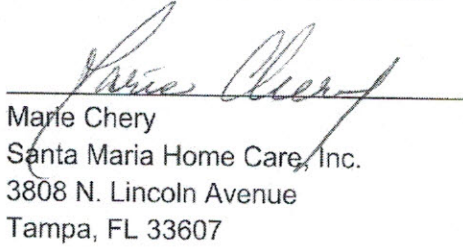 Marie Chery
Marie Chery
Santa Maria Home Care, Inc.
3808 N. Lincoln Avenue
Tampa, FL 33607